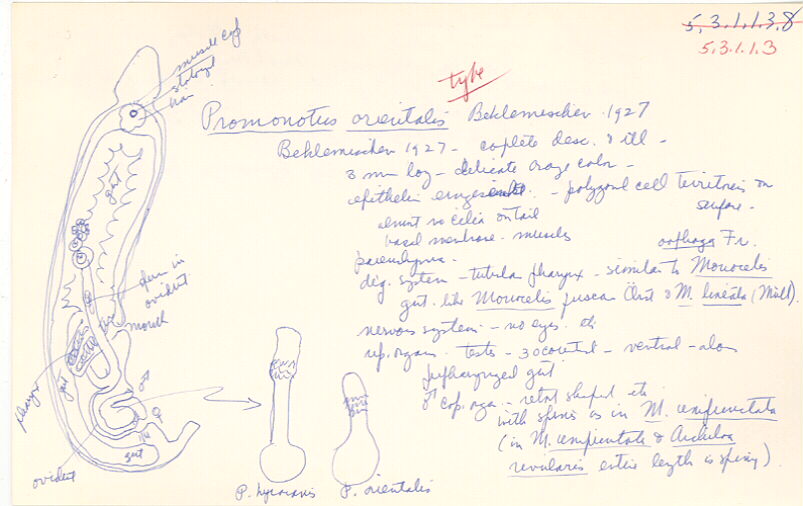 5.3.1.1.3.8
5.3.1.1.3
type
Promonotus orientalis Beklemischev 1927
Beklemischev 1927 - coplete desc. & ill -
3 mm log - delicate orage color -
epithelin - polygonal cell territories on
surface -
almost no cilia on tail
basal membrane - muscles
parenchyma -
oophaga Fr.
dig. system - tubular pharynx - similar to Monocelis
gut - like Monocelis fusca Örst & M. lineata (Müll).
nervous system - no eyes - etc
rep. organs - testes - 30 - ventral - alon
prepharyngeal gut
♂ cop. orga - retort shaped etc
with spines as in M. unipunctata
(in M. unipunctata & Archiloa
rivularis entire length is spiny)
muscle cap
statocyst
brain
gut
mouth
oviduct
pharynx
gut
♂
♀
gut
oviduct
P. hyrcanus
P. orientalis